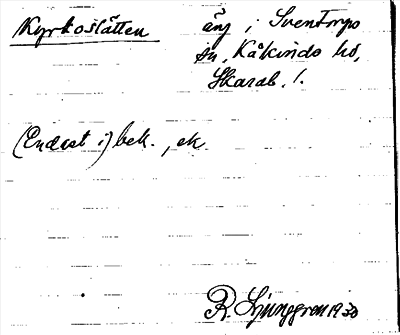 Kyrkoslätten äng i Sventorps
sn, Kåkinds hd,
Skarab. l.
(Endast i) bek., ek.
R. Ljunggren 1930